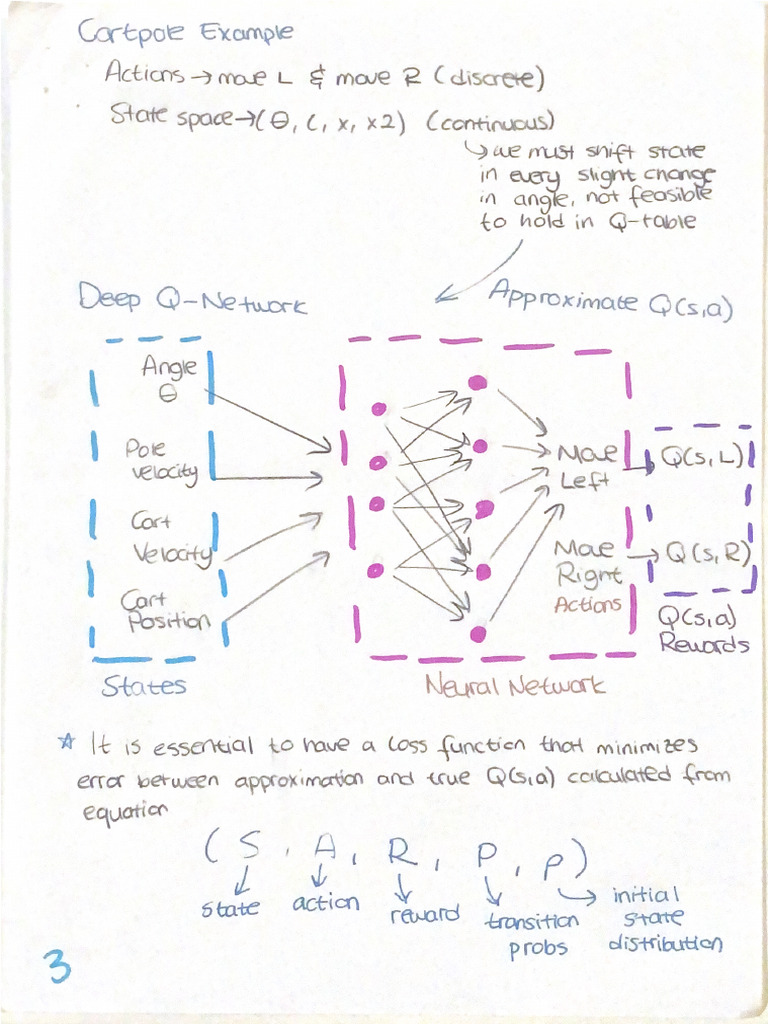 Cartpole Example
Actions → move L & move R (discrete)
State space → (θ, l, x, x2) (continuous)
↳ we must shift state
in every slight change
in angle, not feasible
to hold in Q-table
Deep Q-Network
Approximate Q(s,a)
Angle
θ
Pole
velocity
Cart
Velocity
Cart
Position
States
Move
Left
Move
Right
Actions
Neural Network
Q(s,L)
Q(s,R)
Q(s,a)
Rewards
☆ It is essential to have a loss function that minimizes
error between approximation and true Q(s,a) calculated from
equation
(S, A, R, P, ρ)
state
action
reward
transition
probs
initial
state
distribution
3